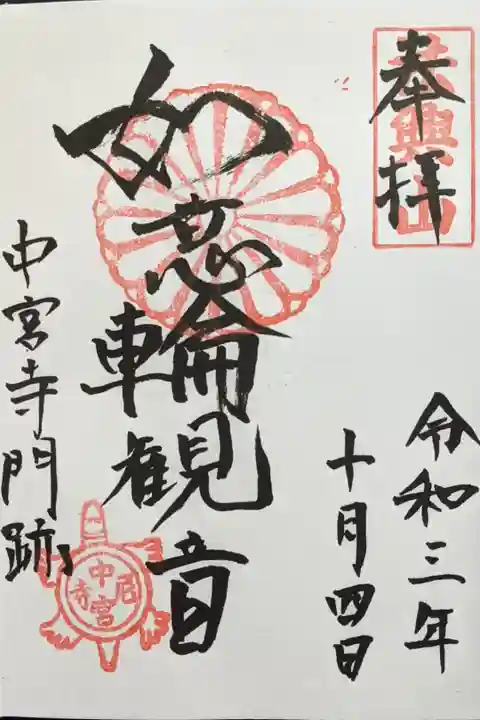 奉拝
令和三年
十月四日
如意輪観音
中宮寺門跡
中宮尼寺